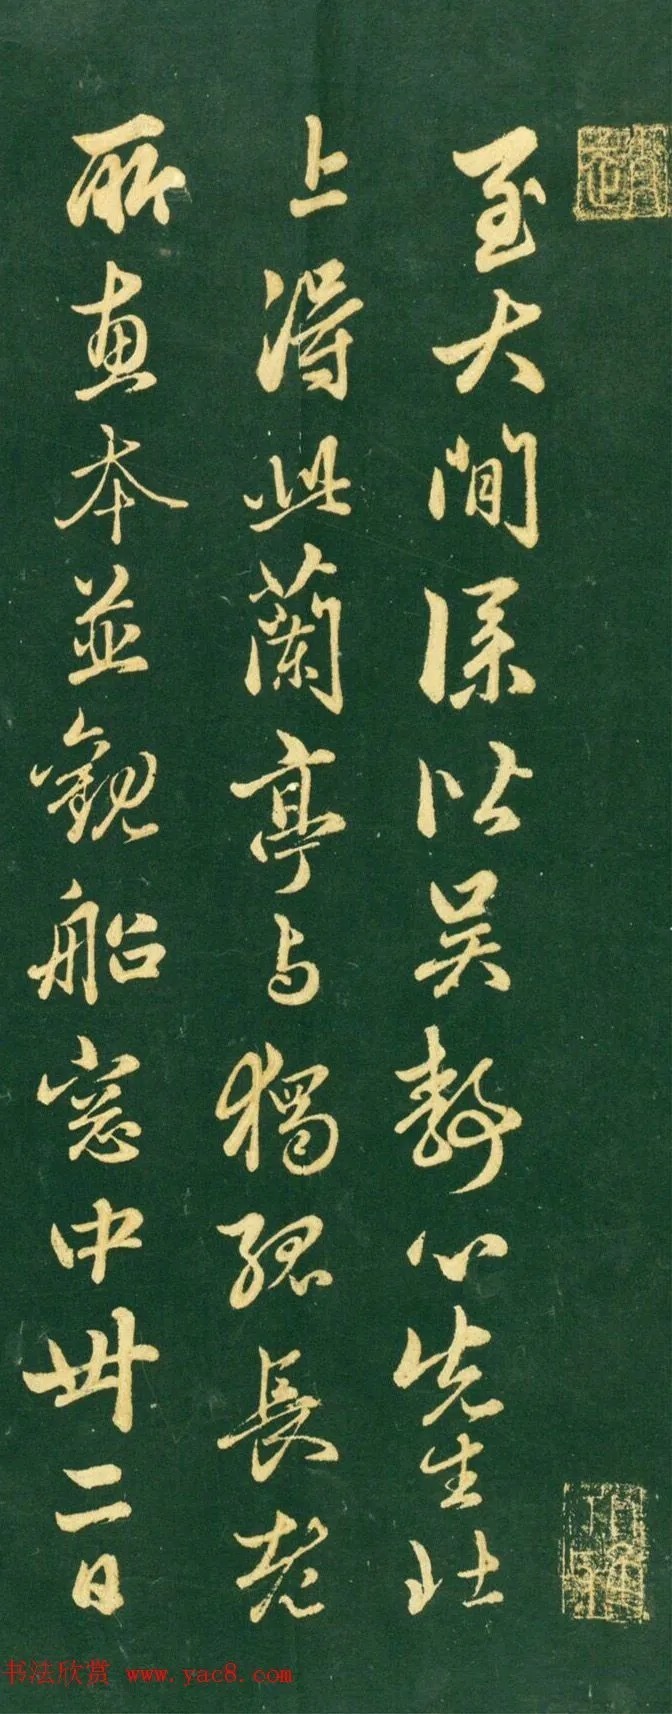 至大間僕从吴静心先生北
上得此蘭亭与獨孤長老
所恵本並觀船窓中卅二日
书法欣赏 www.yac8.com